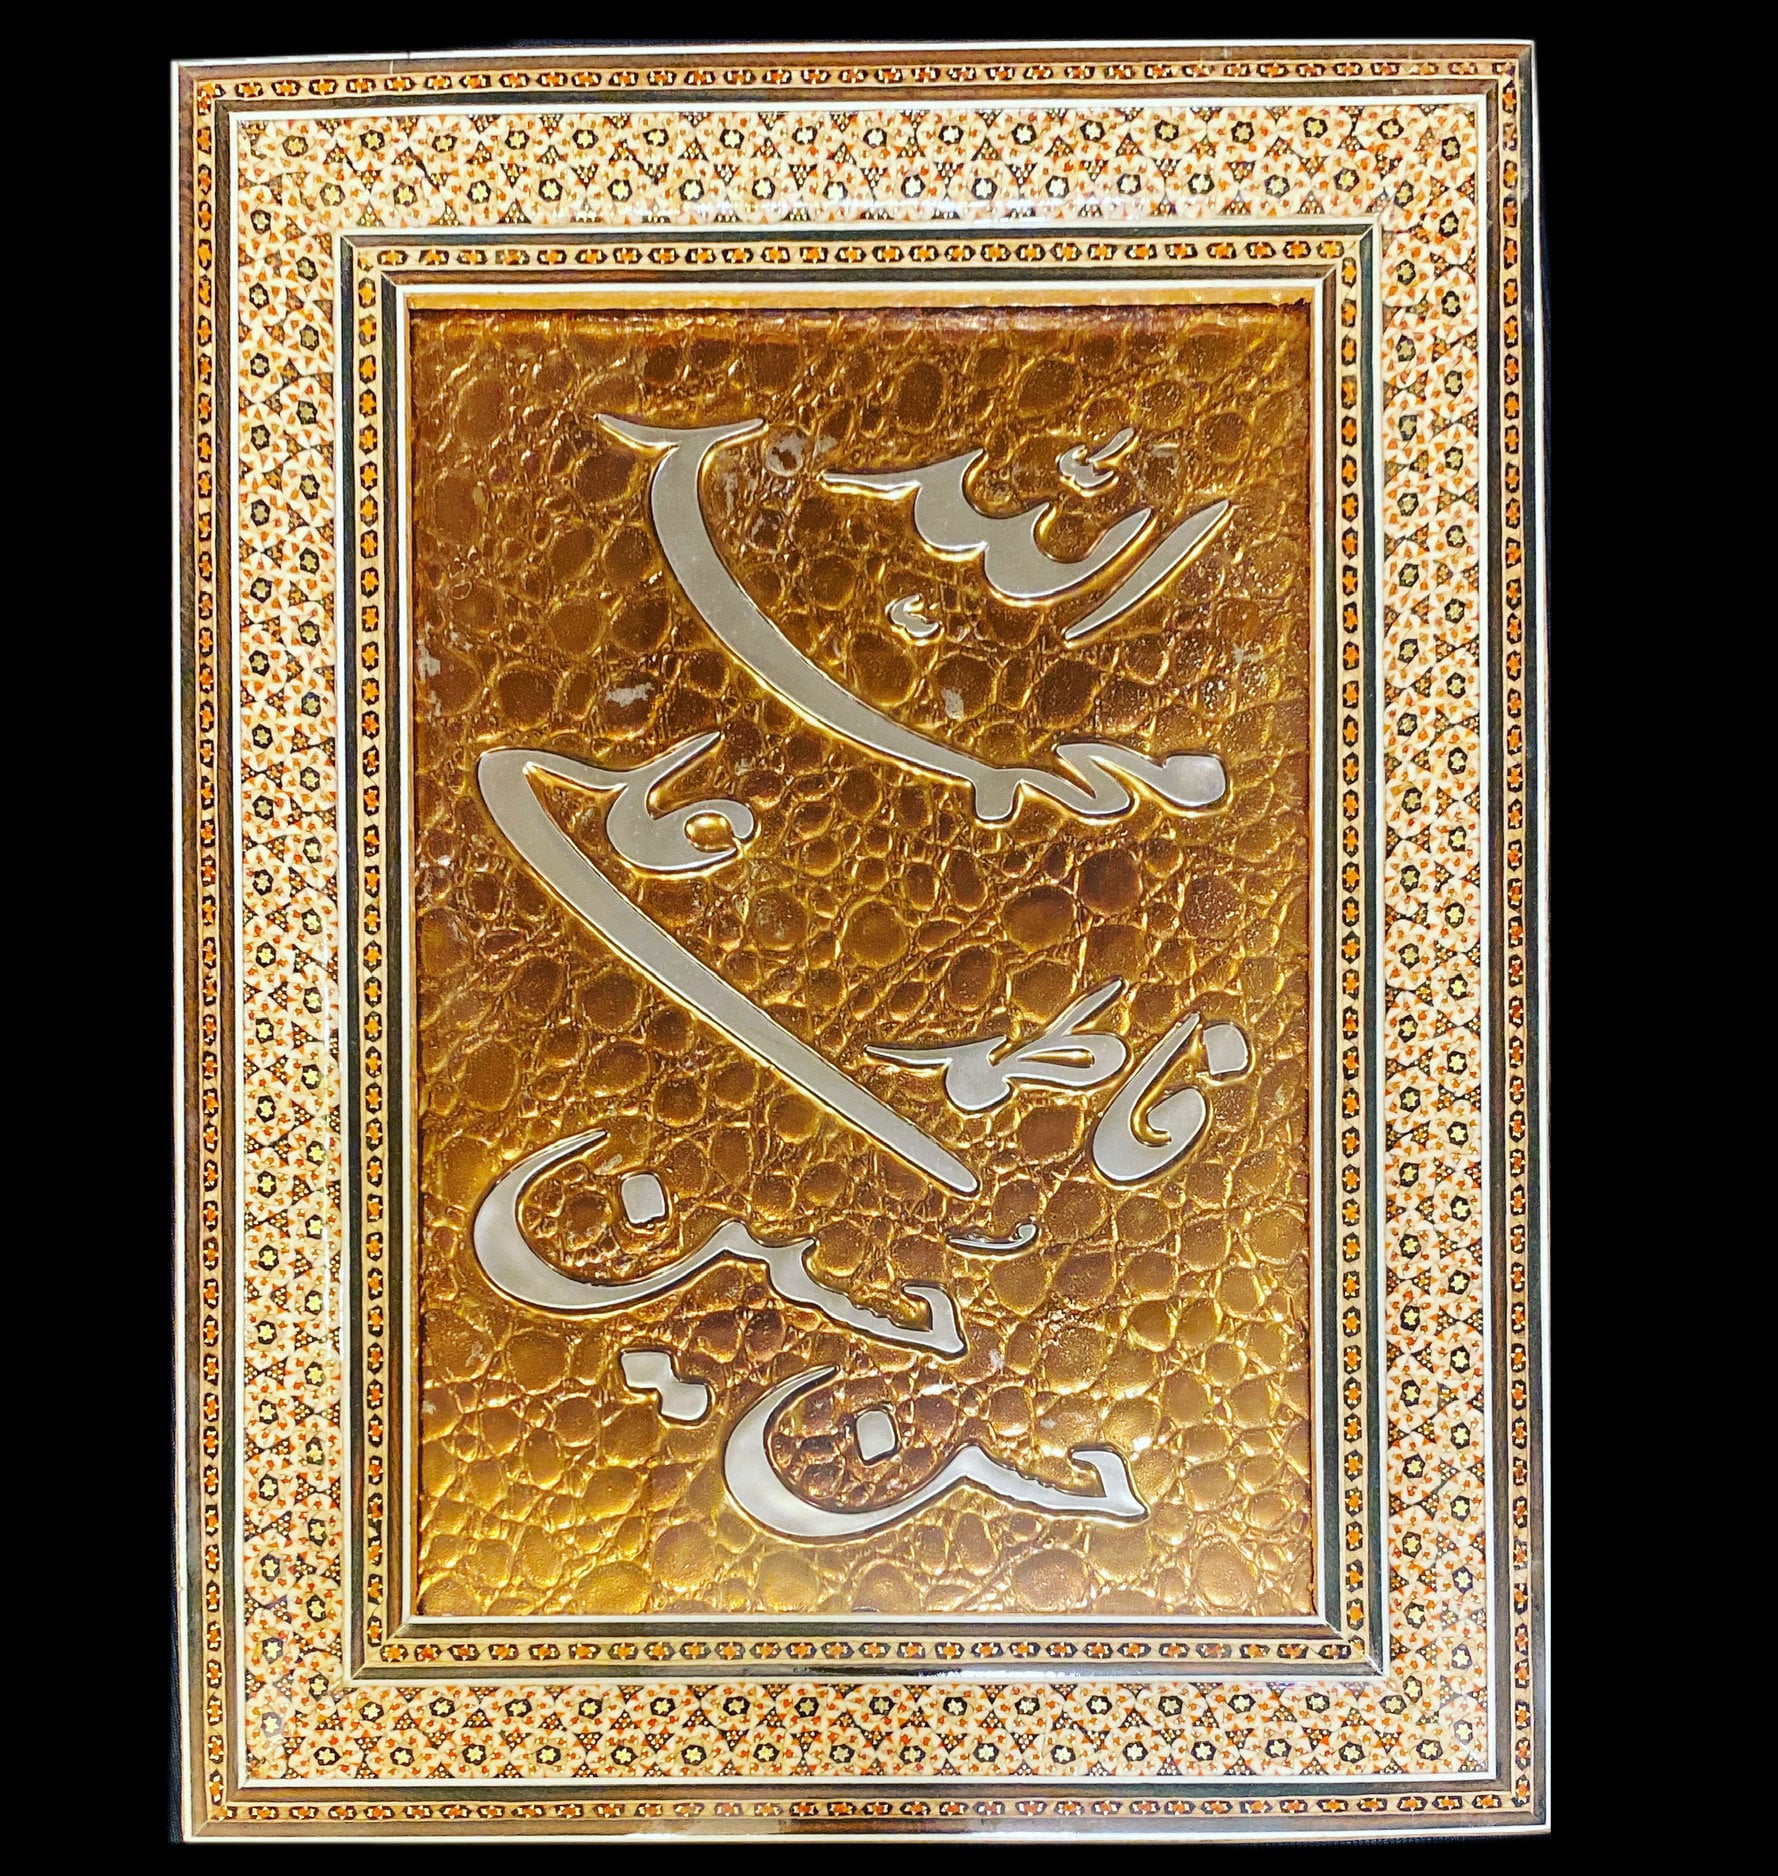 الله
محمد
علی
فاطمه
حسین
حسن